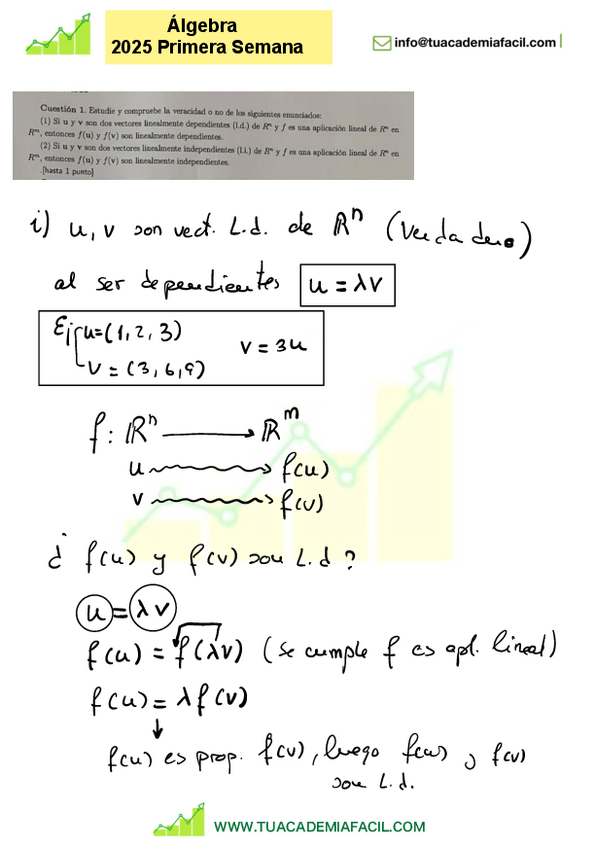 Álgebra
2025 Primera Semana
info@tuacademiafacil.com
Cuestión 1. Estudie y compruebe la veracidad o no de los siguientes enunciados:
(1) Si u y v son dos vectores linealmente dependientes (l.d.) de Rⁿ y f es una aplicación lineal de Rⁿ en
Rᵐ, entonces f(u) y f(v) son linealmente dependientes.
(2) Si u y v son dos vectores linealmente independientes (l.i.) de Rⁿ y f es una aplicación lineal de Rⁿ en
Rᵐ, entonces f(u) y f(v) son linealmente independientes.
[hasta 1 punto]
i) u, v son vect. L.d. de ℝⁿ (Verdadero)
al ser dependientes u = λv
Ej u=(1,2,3)
v = (3,6,9) v = 3u
f: ℝⁿ → ℝᵐ
u → f(u)
v → f(v)
¿ f(u) y f(v) son L.d ?
u = λv
f(u) = f(λv) (se cumple f es apl. lineal)
f(u) = λf(v)
↓
f(u) es prop. f(v), luego f(u) y f(v)
son L.d.
WWW.TUACADEMIAFACIL.COM